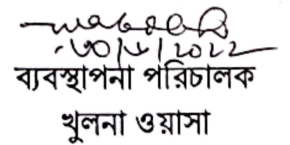 ৩০/৬/2022
ব্যবস্থাপনা পরিচালক
খুলনা ওয়াসা